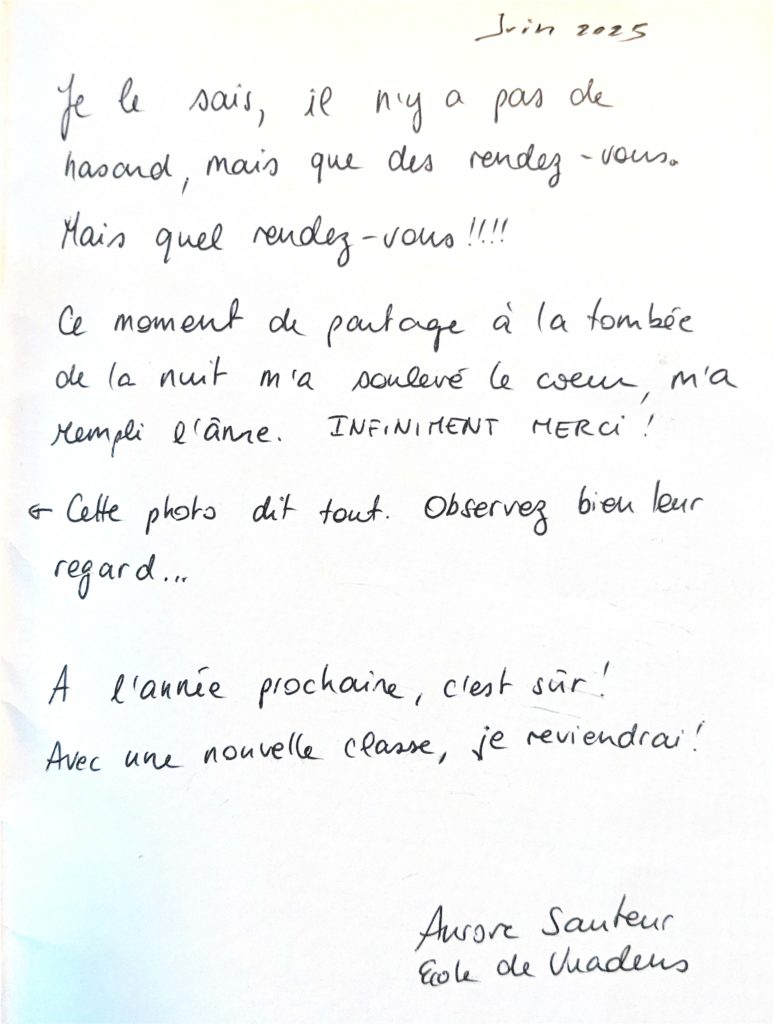 Juin 2025
Je le sais, il n'y a pas de
hasard, mais que des rendez-vous.
Mais quel rendez-vous !!!!
Ce moment de partage à la tombée
de la nuit m'a soulevé le coeur, m'a
rempli l'âme. INFINIMENT MERCi !
← Cette photo dit tout. Observez bien leur
regard...
A l'année prochaine, c'est sûr !
Avec une nouvelle classe, je reviendrai !
Aurore Sauteur
Ecole de Vuadens